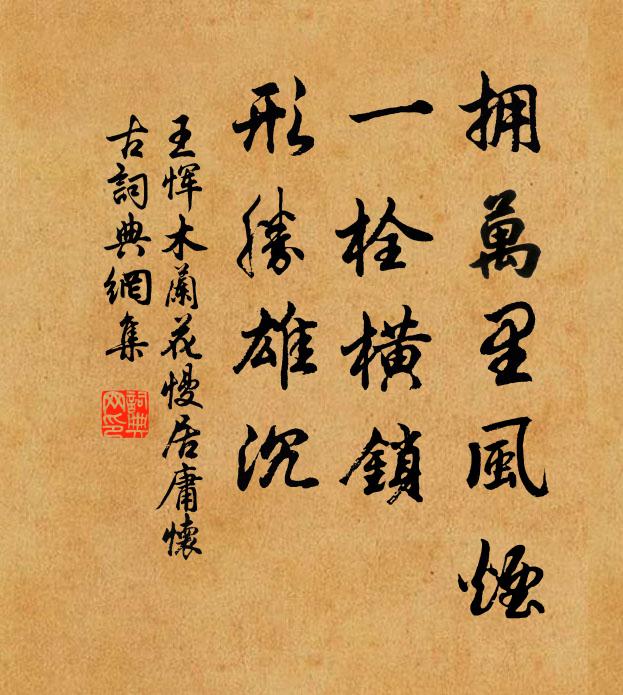 拥萬里風煙
一栓橫鎖
形勝雄沉
王恽木蘭花慢居庸懷
古詞典網集
詞典網印